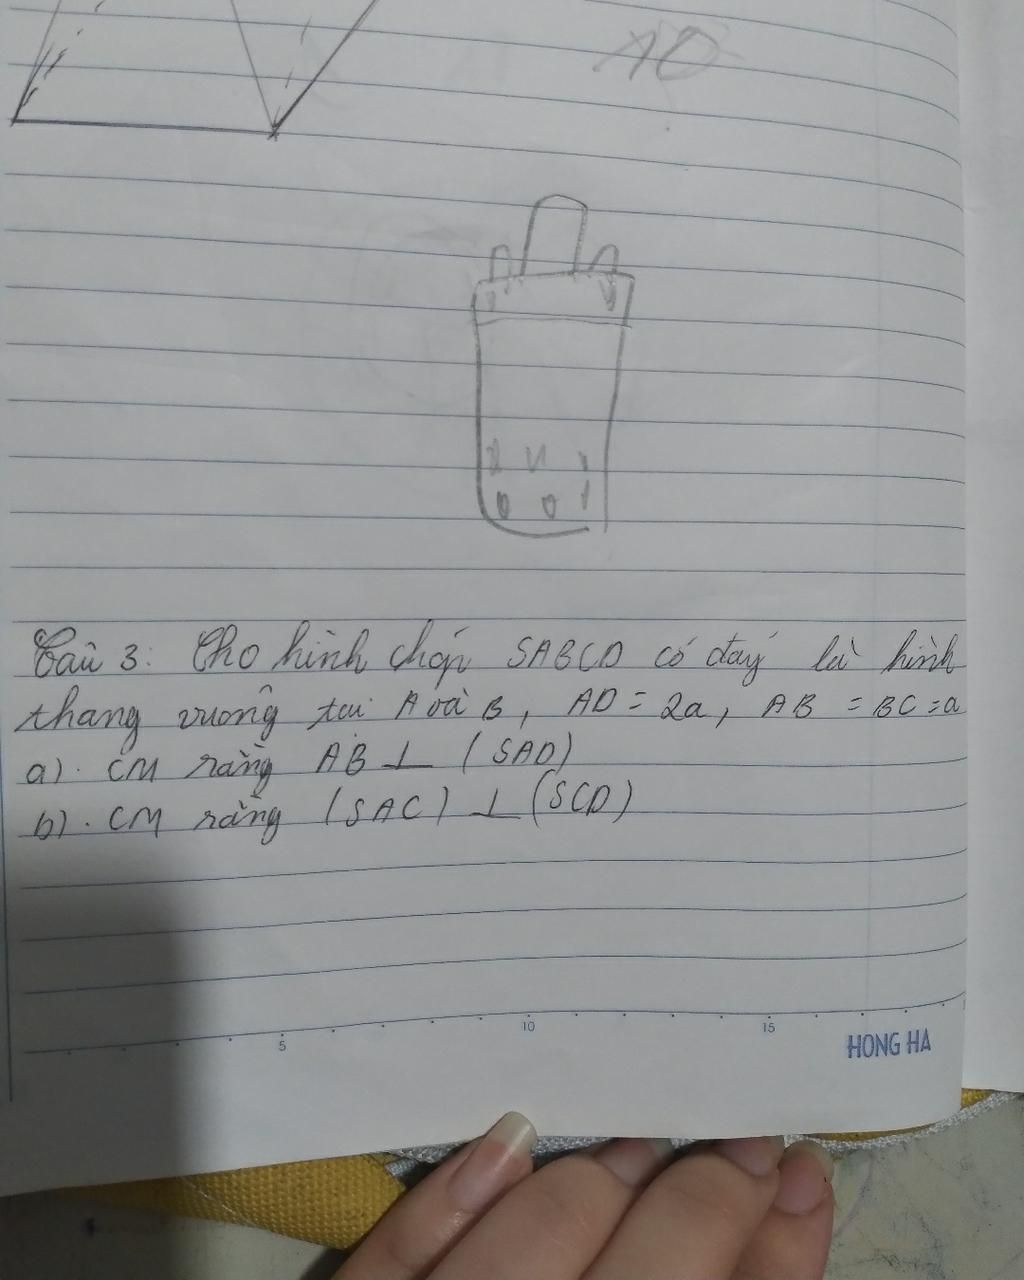 Câu 3: Cho hình chóp SABCD có đáy là hình
thang vuông tại A và B, AD = 2a, AB = BC = a
a). CM rằng AB ⊥ (SAD)
b). CM rằng (SAC) ⊥ (SCD)
5 10 15
HONG HA